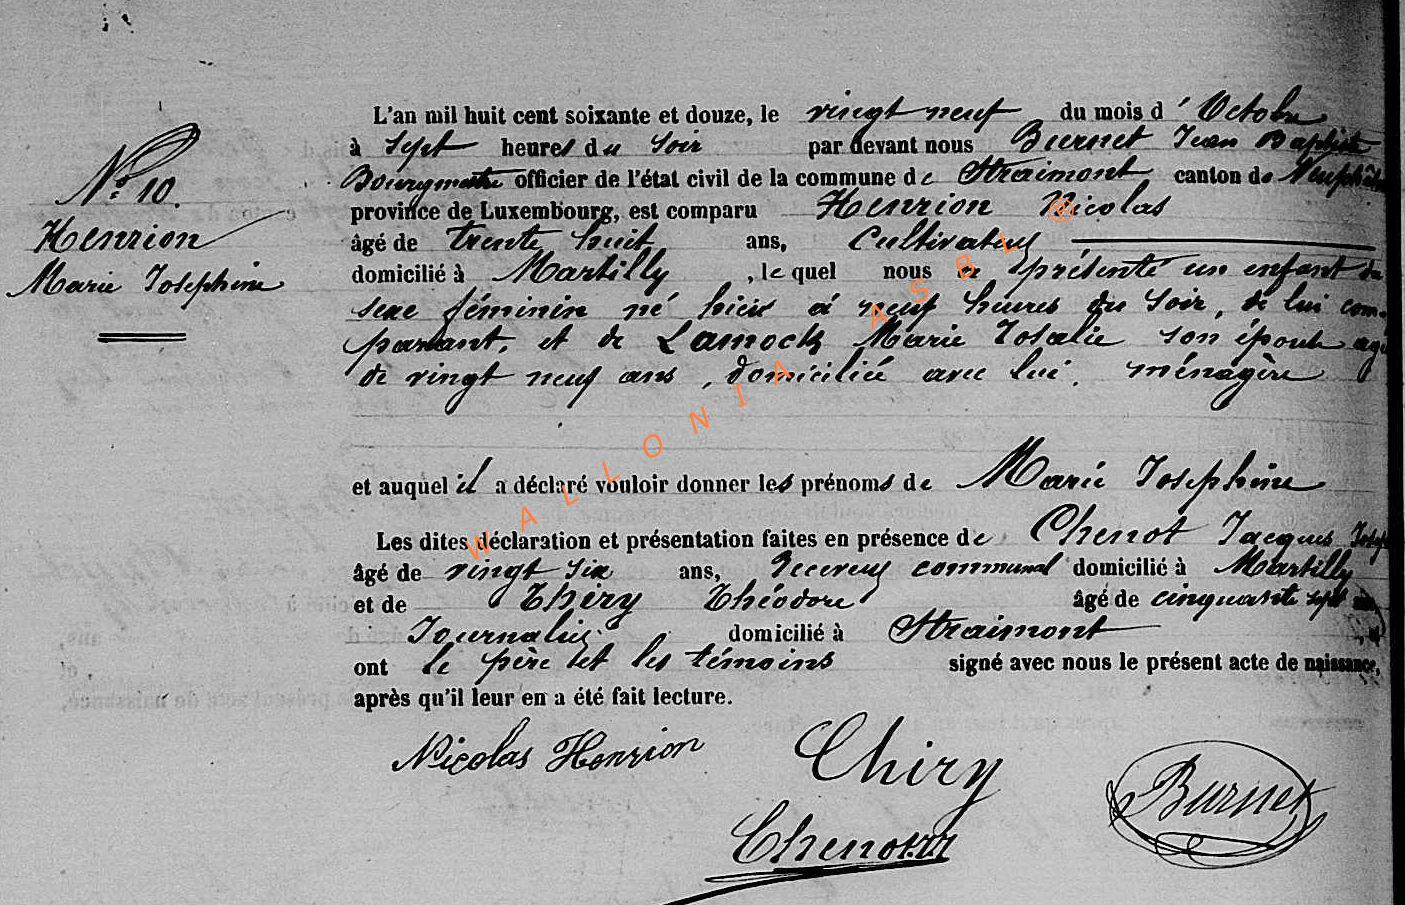 L'an mil huit cent soixante et douze, le vingt neuf du mois d' Octobre
à sept heures du soir par devant nous Burnet Jean Baptiste
Bourgmestre officier de l'état civil de la commune de Straimont canton de
N° 10.
province de Luxembourg, est comparu Henrion Nicolas
Henrion
âgé de trente huit ans, Cultivateur
Marie Josephine
domicilié à Martilly, le quel nous a présenté un enfant du
sexe féminin né hier à neuf heures du soir, de lui com-
parant, et de Lamock Marie Rosalie son épouse agée
de vingt neuf ans, domiciliée avec lui, ménagère
et auquel il a déclaré vouloir donner les prénoms de Marie Josephine
Les dites déclaration et présentation faites en présence de Chenot Jacques
âgé de vingt six ans, Receveur communal domicilié à Martilly
et de Thiry Théodore âgé de cinquante sept ans
Journalier domicilié à Straimont
ont le père et les témoins signé avec nous le présent acte de naissance,
après qu'il leur en a été fait lecture.
Nicolas Henrion Thiry Burnet
Chenot
WALLONIA ASBL ®